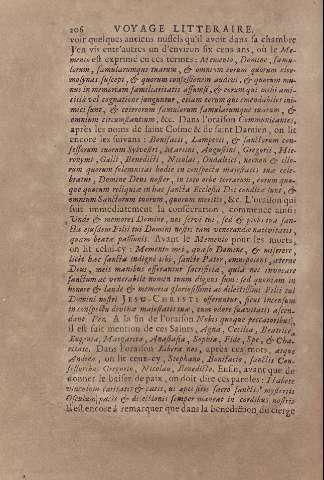 206 VOYAGE LITTERAIRE.
voir quelques anciens missels qu'il avoit dans sa chambre
J'en vis entr'autres un d'environ six cens ans, où le Me-
mento est exprimé en ces termes : Memento, Domine, famu-
lorum, famularumque tuarum, & omnium eorum quorum elee-
mosynas suscepi, & quorum confessionem audivi, & quorum mu-
nus in memoriam familiaritatis assumsi, & eorum qui mihi ami-
citiâ vel cognatione junguntur, etiam eorum qui
mici sunt, & ceterorum famulorum famularumque tuarum, &
omnium circumstantium, &c. Dans l'oraison Communicantes,
après les noms de saint Cosme & de saint Damien, on lit
encore les suivans : Bonifacii, Lamperti, & sanctorum con-
fessorum tuorum Sylvestri, Martini, Augustini, Gregorii, Hie-
ronymi, Galli, Benedicti, Nicolai, Oudalrici, necnon & illo-
rum quorum solemnitas hodie in conspectu majestatis tuæ cele-
bratur, Domine Deus noster, in toto orbe terrarum, eorum quo-
que quorum reliquiæ in hac sancta Ecclesia Dei conditæ sunt, &
omnium Sanctorum tuorum, quorum meritis, &c. L'oraison qui
suit immédiatement la consécration, commence ainsi :
Unde & memores Domine, nos servi tui, sed & plebs tua san-
cta ejusdem Filii tui Domini nostri tam venerandæ nativitatis,
quàm beatæ passionis. Avant le Memento pour les morts,
on lit celui-cy : Memento mei, quæso Domine, & miserere,
licèt hæc sanctâ indignè tibi, sancte Pater, omnipotens, æterne
Deus, meis manibus offerantur sacrificia, quia nec invocare
sanctum ac venerabile nomen tuum dignus sum : sed quoniam in
honore & laude & memoria gloriosissimi ac dilectissimi Filii tui
Domini nostri JESU-CHRISTI offeruntur, sicut incensum
in conspectu divinæ majestatis tuæ, cum odore suavitatis accen-
dantur. Per. A la fin de l'oraison Nobis quoque peccatoribus,
il est fait mention de ces Saints, Agna, Cecilia, Beatrice,
Eugenia, Margarita, Anastasia, Sophia, Fide, Spe, & Cha-
ritate. Dans l'oraison Libera nos, après ces mots, atque
Andrea, on lit ceux-cy, Stephano, Bonifacio, sanctis Con-
fessoribus Gregorio, Nicolao, Benedicto. Enfin, avant que de
donner le baiser de paix, on doit dire ces paroles : Habete
vinculum caritatis & pacis, ut apti sitis sacro sanctis mysteriis
Osculum pacis & dilectionis semper maneat in cordibus nostris
Il est encore à remarquer que dans la bénédiction du cierge